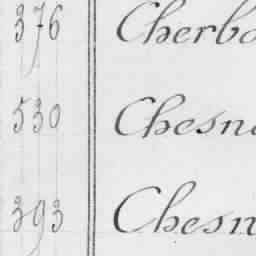 376 Cherbo
530 Chesn
393 Chesn